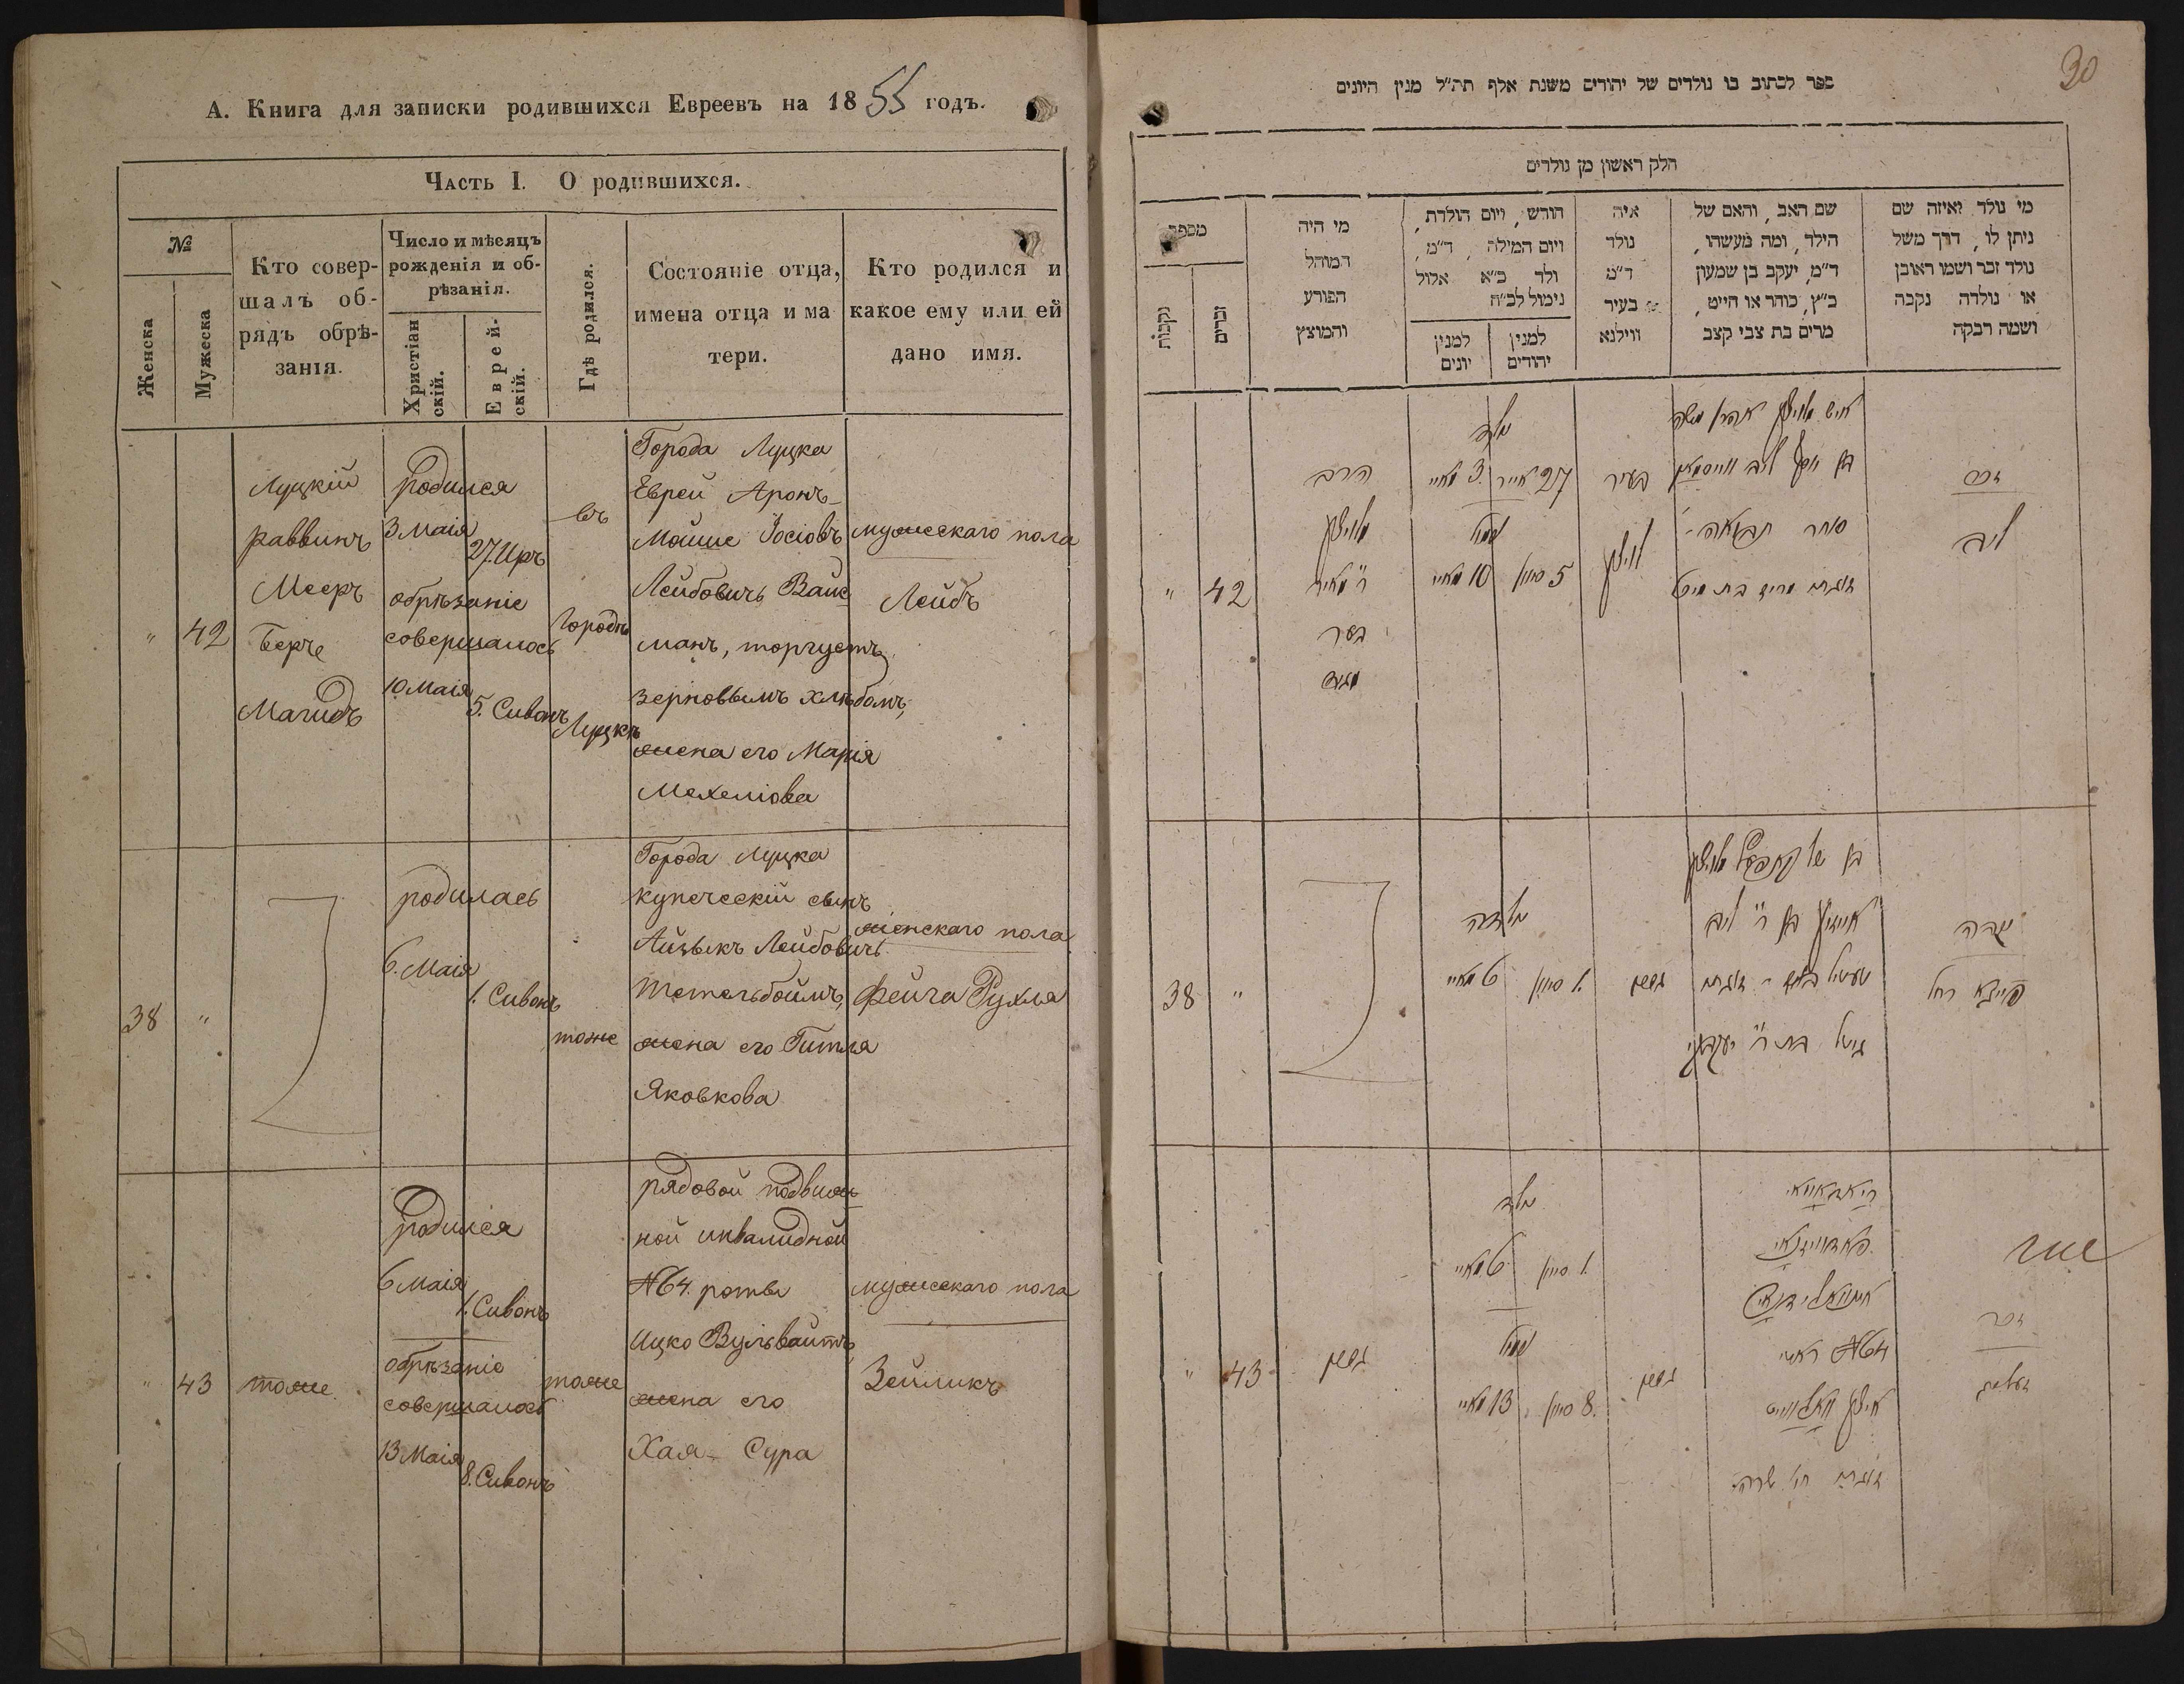 А. Книга для записки родившихся Евреевъ на 1855 годъ.
Часть I. О родившихся.
№
Женска
Мужеска
Кто совер-
шалъ об-
рядъ обрѣ-
занія.
Число и мѣсяцъ
рожденія и об-
рѣзанія.
Христіан
скій.
Еврей-
скій.
Гдѣ родился.
Состояніе отца,
имена отца и ма
тери.
Кто родился и
какое ему или ей
дано имя.
" 42
Луцкій
раввинъ
Мееръ
Берче
Магидъ
родился
3 Маія
27. Иръ
обрѣзаніе
совершалось
10. Маія
5. Сивонъ
въ
Городѣ
Луцкѣ
Города Луцка
Еврей Аронъ-
Мошие Іосіовъ
Лейбовичъ Ваис
манъ, торгуетъ
зерновымъ хлѣбомъ,
жена его Марія
Мехеліова
мужескаго пола
Лейбъ
38 "
родилась
6. Маія
1. Сивонъ
тоже
Города Луцка
купеческій сынъ
Айзыкъ Лейбовичъ
Тетельбоймъ,
жена его Гитля
Яковкова
женскаго пола
Фейга Рухля
" 43
тоже.
родился
6 Маія
1. Сивонъ
обрѣзаніе
совершалось
13 Маія
8. Сивонъ
тоже
рядовой подвиж
ной инвалидной
№64. роты
Ицко Вульвайтъ,
жена его
Хая-Сура
мужескаго пола
Зейликъ
30
ספר לכתוב בו נולדים של יהודים משנת אלף תת״ל מנין היונים
חלק ראשון מן נולדים
מספר
נקבות
זכרים
מי היה
המוהל
הפורע
והמוצץ
חודש, ויום הולדת,
ויום המילה, ד״מ,
ולד כ״א אלול
נימול לב״ח
למנין
יונים
למנין
יהודים
איה
נולד
ד״מ
בעיר
ווילנא
שם האב, והאם של
הילד, ומה מעשהו,
ד״מ, יעקב בן שמעון
כ״ץ, סוהר או חייט,
מרים בת צבי קצב
מי נולד ואיזה שם
ניתן לו, דרך משל
נולד זכר ושמו ראובן
או נולדה נקבה
ושמה רבקה
" 42
הרב
ר״ מאיר
בער
נולד
3. מאיי
27 אייר
10 מאיי
5 סיון
בעיר
סוחר תבואה
זכר
ליב
38 "
נולדה
6 מאיי
1. סיון
נקבה
פייגא רחל
" 43
נולד
6 מאיי
1. סיון
13 מאיי
8. סיון
№64
זכר